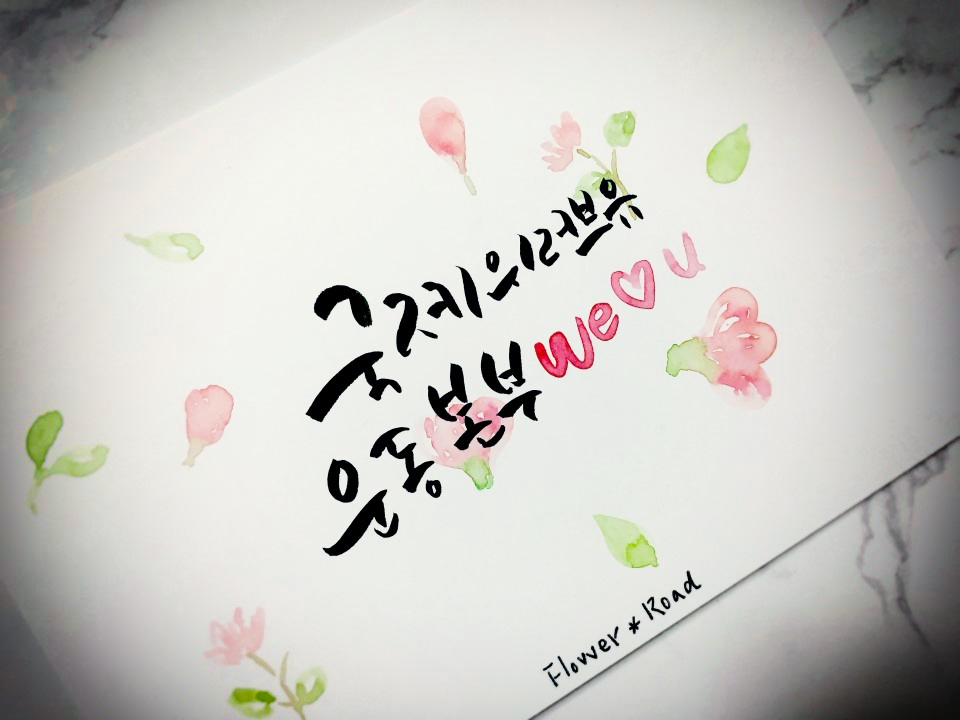 국제위러브유
운동본부 we♡u
Flower * Road